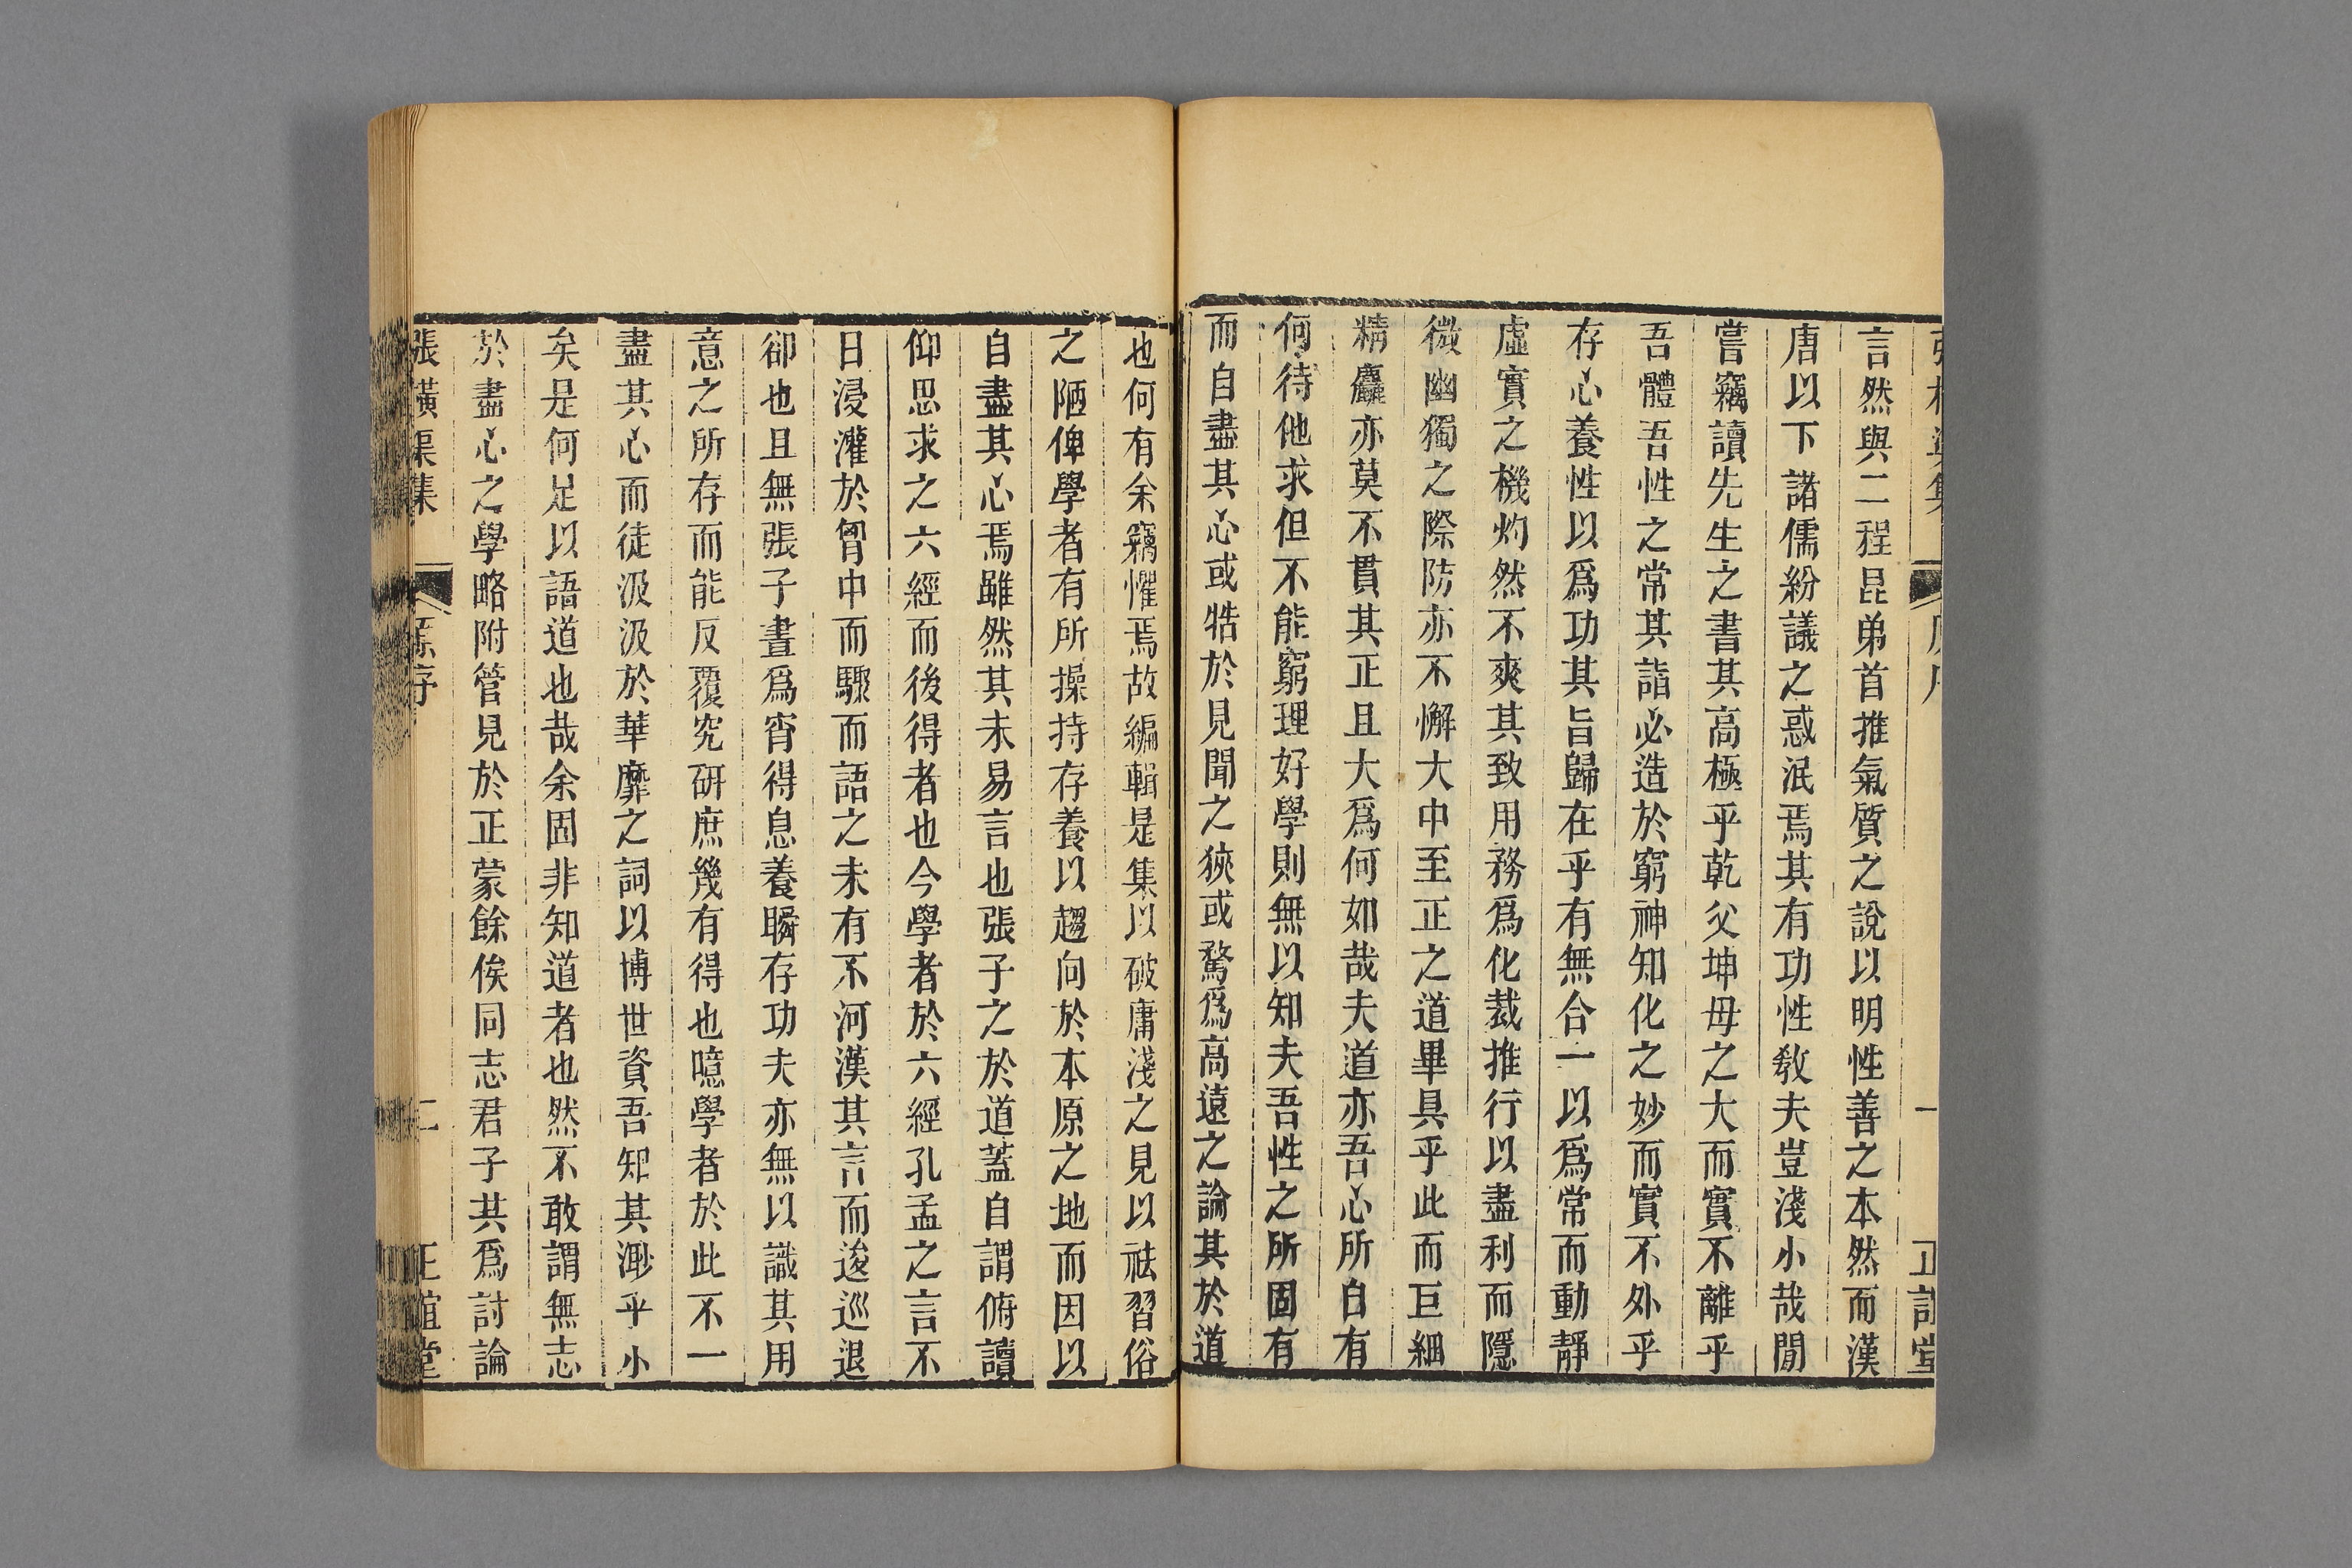 言然與二程昆弟首推氣質之說以明性善之本然而漢
唐以下諸儒紛議之惑泯焉其有功性教夫豈淺小哉閒
嘗竊讀先生之書其高極乎乾父坤母之大而實不離乎
吾體吾性之常其詣必造於窮神知化之妙而實不外乎
存心養性以爲功其旨歸在乎有無合一以爲常而動靜
虛實之機灼然不爽其致用務爲化裁推行以盡利而隱
微幽獨之際防亦不懈大中至正之道畢具乎此而巨細
精麤亦莫不貫其正且大爲何如哉夫道亦吾心所自有
何待他求但不能窮理好學則無以知夫吾性之所固有
而自盡其心或牿於見聞之狹或騖爲高遠之論其於道
也何有余竊懼焉故編輯是集以破庸淺之見以祛習俗
之陋俾學者有所操持存養以趨向於本原之地而因以
自盡其心焉雖然其未易言也張子之於道蓋自謂俯讀
仰思求之六經而後得者也今學者於六經孔孟之言不
日浸灌於胷中而驟而語之未有不河漢其言而逡巡退
卻也且無張子晝爲宵得息養瞬存功夫亦無以識其用
意之所存而能反覆究研庶幾有得也噫學者於此不一
盡其心而徒汲汲於華靡之詞以博世資吾知其渺乎小
矣是何足以語道也哉余固非知道者也然不敢謂無志
於盡心之學略附管見於正蒙餘俟同志君子共爲討論
張橫渠集 原序 二 正誼堂